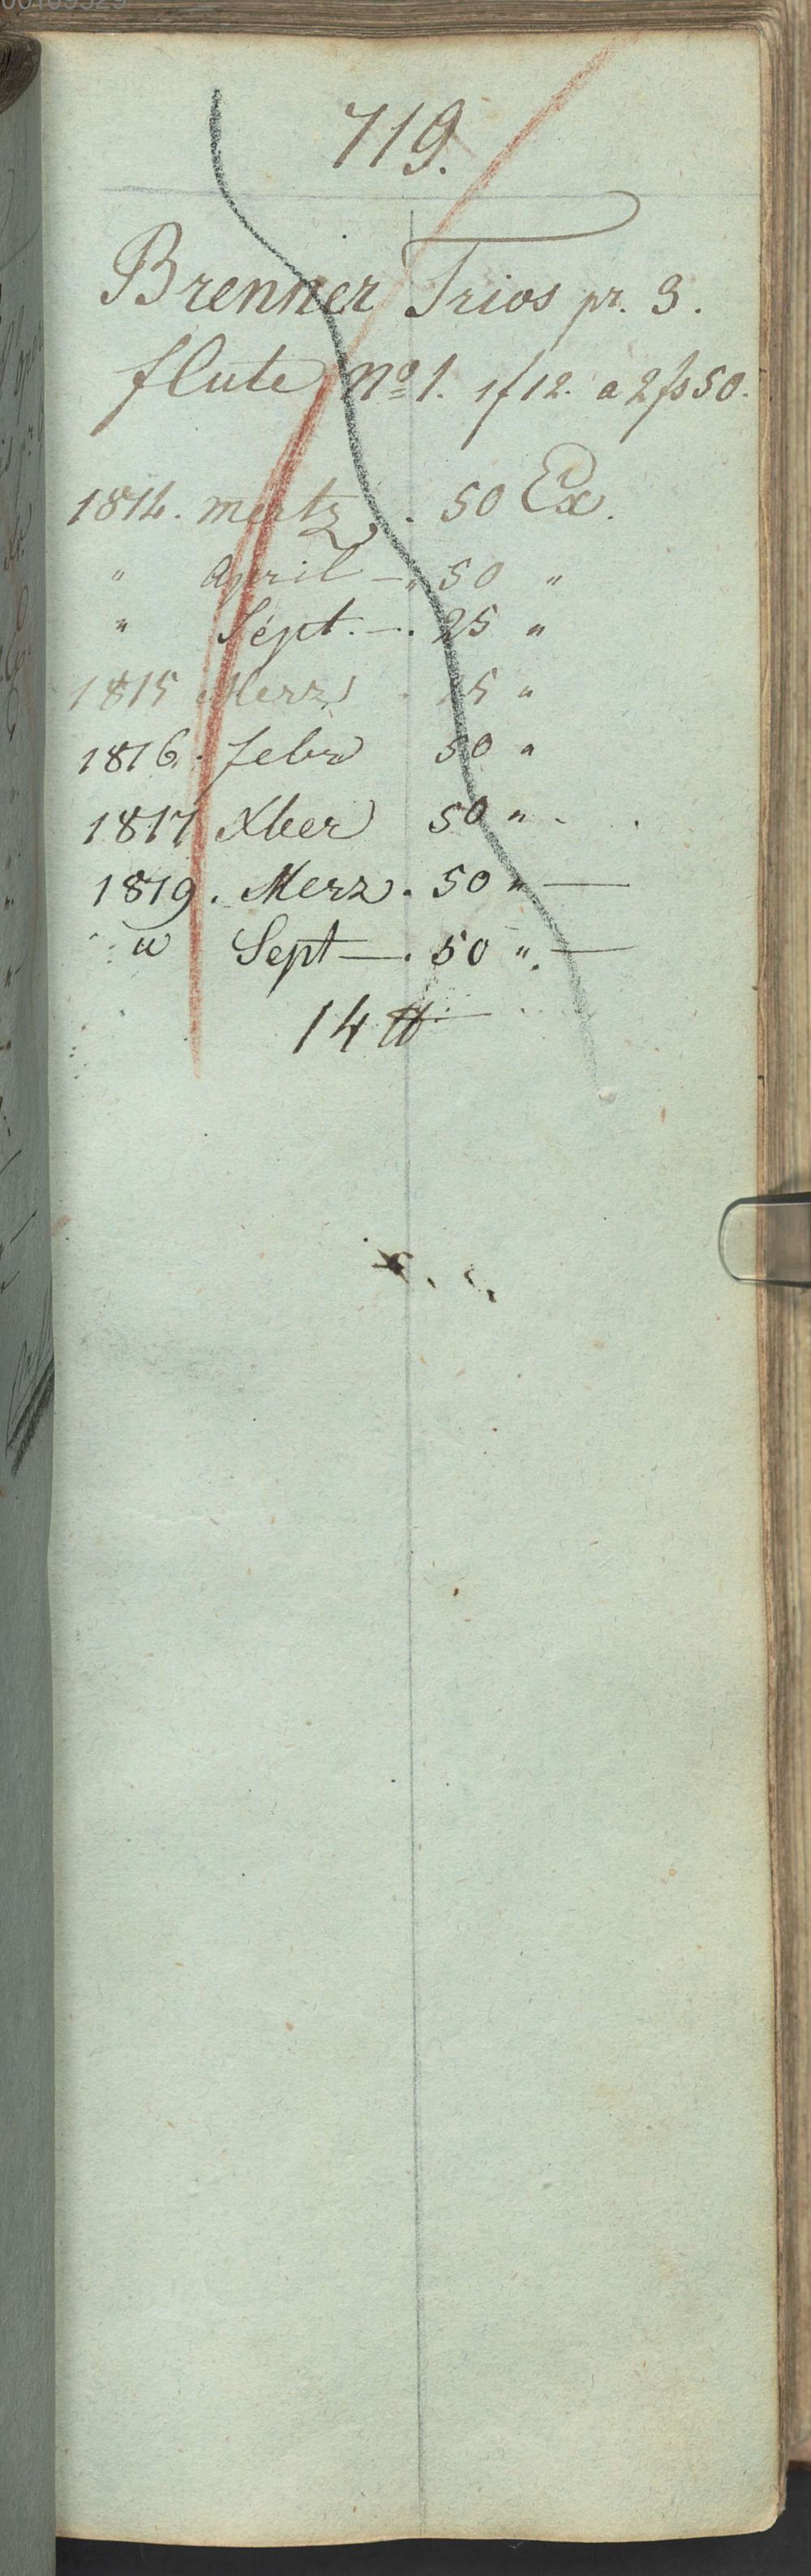 719.
Brenner Trios pr. 3.
flute No 1. 1f12. a 2fs50.
1814. mertz . 50 Ex.
" April — " 50 "
" Sept. — . 25 "
1815 Merz . 25 "
1816. Febr 50 "
1817 Xber 50 "
1819. Merz. 50 " —
" Sept — . 50 " —
14 ℔